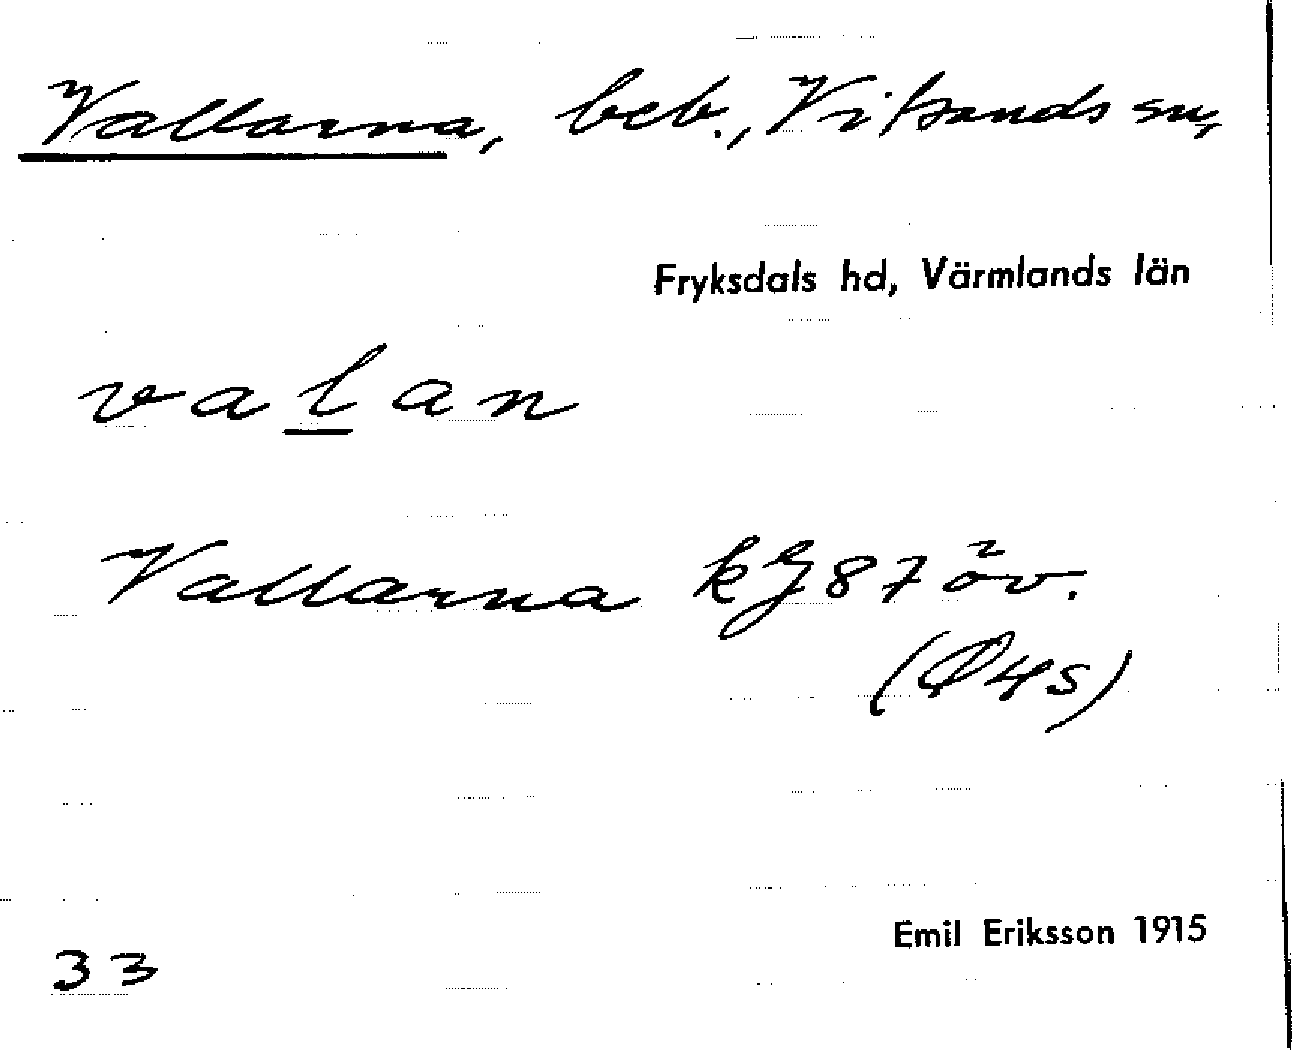 Vallarna, beb., Vitsands sn,
Fryksdals hd, Värmlands län
valan
Vallarna kJ87 öv.
(Ö4s)
33
Emil Eriksson 1915